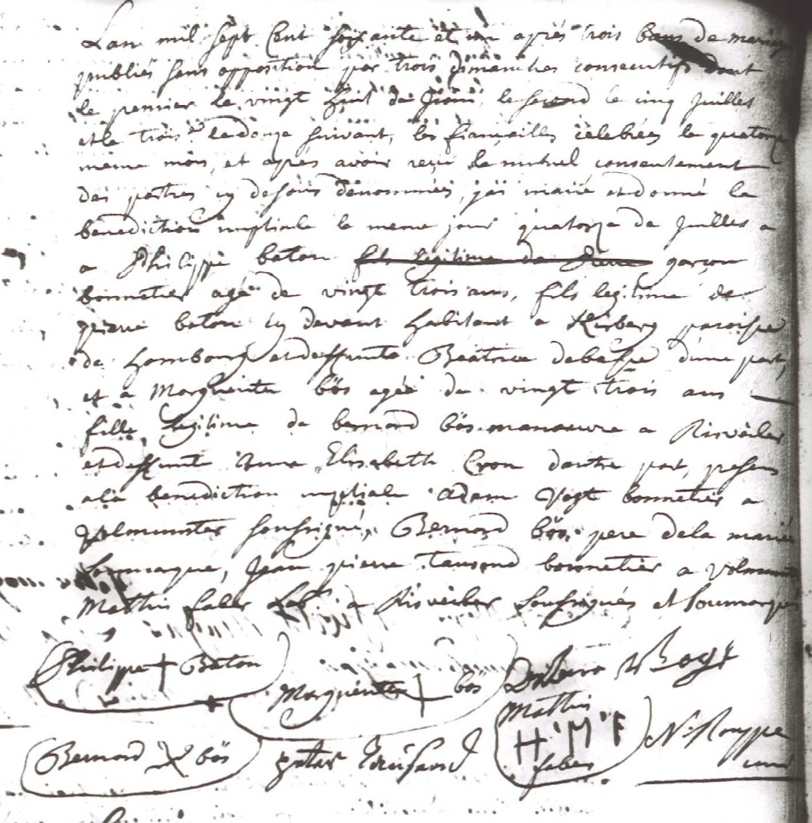 Lan mil sept Cent soixante et un après trois bans de mariage
publiés sans opposition par trois dimanches consecutifs dont
le premier le vingt huit de Juin, le second le cinq Juillet
et le trois.e le douze suivant, les fiançailles célebrées le quatorze
même mois, et après avoir reçu le mutuel consentement
des parties cy dessous dénommées, j'ai marié et donné la
benediction nuptiale le meme jour quatorze de Juillet a
a Philippe baton fils legitime de garçon
bonnetier agé de vingt trois ans, fils legitime de
pierre baton cy devant habitant a Kirberg paroisse
de hombourg et deffunte Beatrice d'une part,
et a Marguerite bös agée de vingt trois ans
fille legitime de bernard bös manoeuvre a
et deffunte Anna Elisabeth Cron dautre part, présens
a la benediction nuptiale adam Vogt bonnetier a
Volmunster soussigné, Bernard bös pere de la mariée
soumarque, Jean pierre bonnetier a
Mathis faber a soussignés et soumarqués
Philippe + Baton
Marguerite + bös
Bernard X bös
Mathis
H M F
faber
peter
N. Rouppe
curé